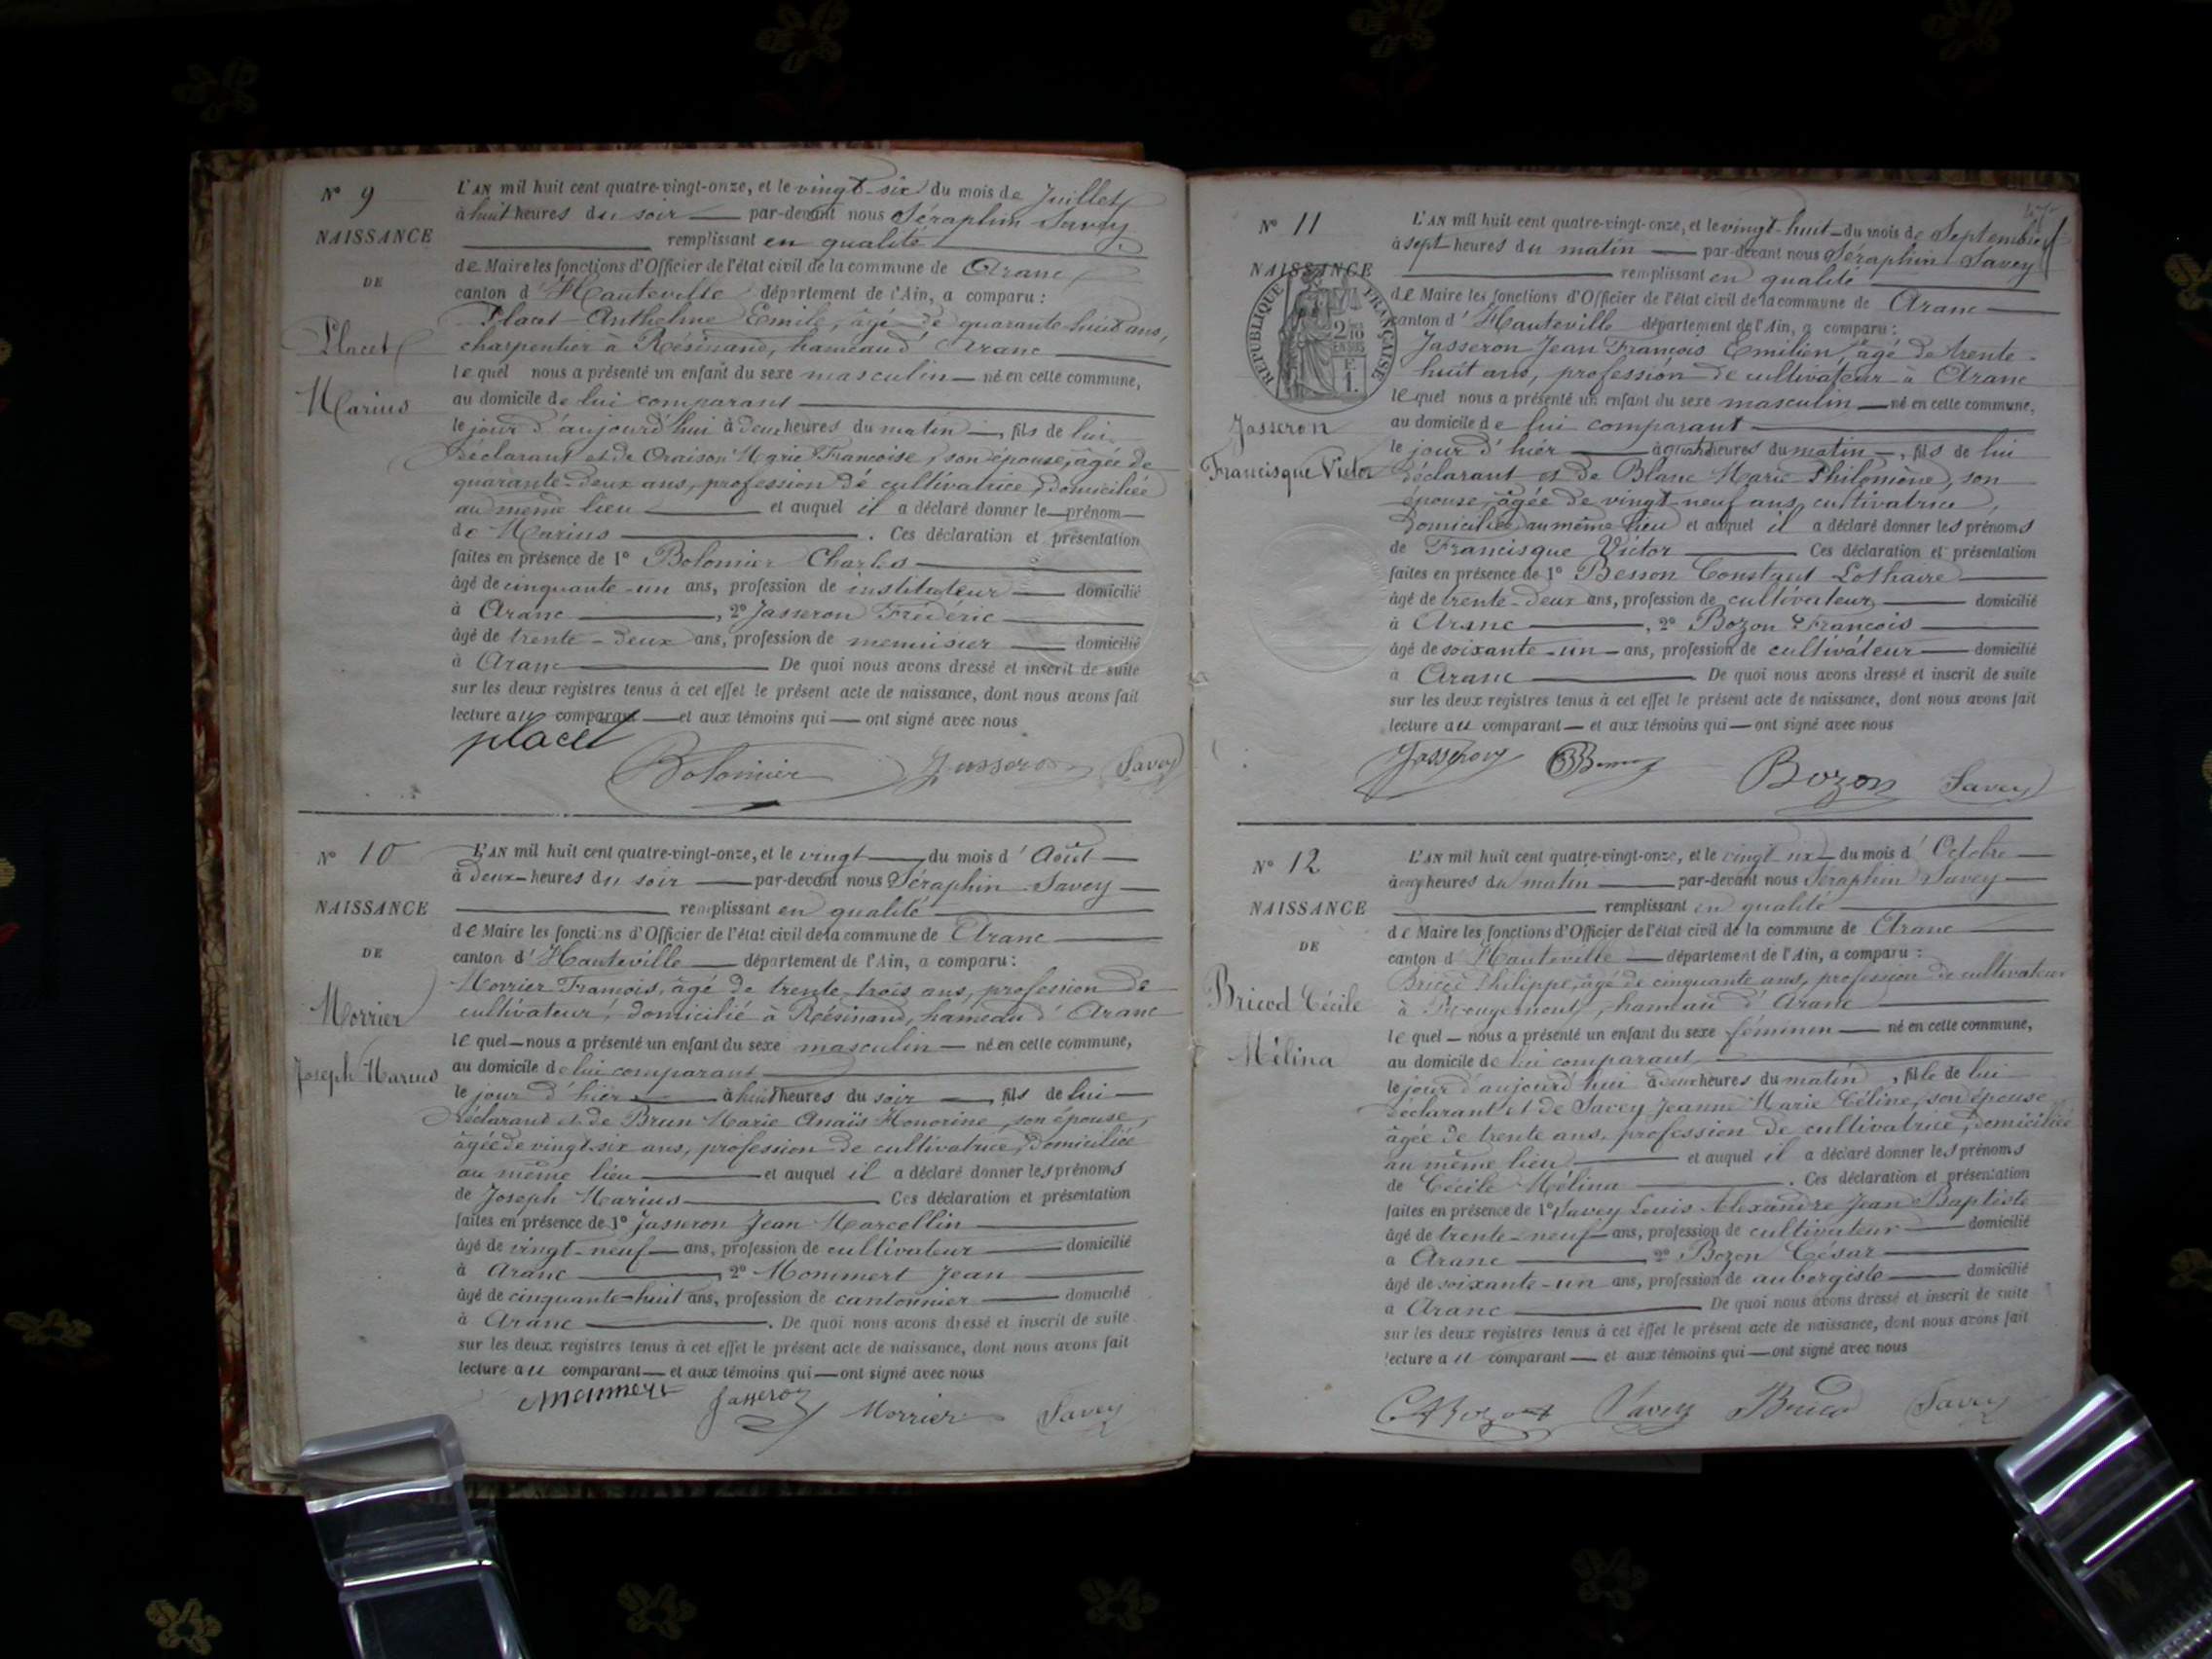 N° 9
NAISSANCE
DE
Placet
Marius
L'AN mil huit cent quatre-vingt-onze, et le vingt-six du mois de Juillet
à huit heures du soir — par-devant nous Séraphin Savey
remplissant en qualité
de Maire les fonctions d'Officier de l'état civil de la commune de Aranc
canton d'Hauteville département de l'Ain, a comparu :
Placet Anthelme Emile, âgé de quarante-huit ans,
charpentier à Résinand, hameau d'Aranc
lequel nous a présenté un enfant du sexe masculin — né en cette commune,
au domicile de lui comparant
le jour d'aujourd'hui à deux heures du matin —, fils de lui
déclarant et de Oraison Marie Françoise, son épouse, âgée de
quarante-deux ans, profession de cultivatrice, domiciliée
au même lieu — et auquel il a déclaré donner le prénom
de Marius — . Ces déclaration et présentation
faites en présence de 1° Bolomier Charles
âgé de cinquante-un ans, profession de instituteur — domicilié
à Aranc —, 2° Jasseron Frédéric
âgé de trente-deux ans, profession de menuisier — domicilié
à Aranc — De quoi nous avons dressé et inscrit de suite
sur les deux registres tenus à cet effet le présent acte de naissance, dont nous avons fait
lecture au comparant — et aux témoins qui — ont signé avec nous
placet
Bolomier Jasseron Savey
N° 10
NAISSANCE
DE
Morrier
Joseph Marius
L'AN mil huit cent quatre-vingt-onze, et le vingt — du mois d'Août
à deux heures du soir — par-devant nous Séraphin Savey
remplissant en qualité
de Maire les fonctions d'Officier de l'état civil de la commune de Aranc
canton d'Hauteville — département de l'Ain, a comparu :
Morrier François, âgé de trente-trois ans, profession de
cultivateur, domicilié à Résinand, hameau d'Aranc
lequel — nous a présenté un enfant du sexe masculin — né en cette commune,
au domicile de lui comparant
le jour d'hier — à huit heures du soir —, fils de lui
déclarant et de Brun Marie Anaïs Honorine, son épouse,
âgée de vingt-six ans, profession de cultivatrice, domiciliée
au même lieu — et auquel il a déclaré donner les prénoms
de Joseph Marius — Ces déclaration et présentation
faites en présence de 1° Jasseron Jean Marcellin
âgé de vingt-neuf — ans, profession de cultivateur — domicilié
à Aranc —, 2° Mommert Jean
âgé de cinquante-huit ans, profession de cantonnier — domicilié
à Aranc — . De quoi nous avons dressé et inscrit de suite
sur les deux registres tenus à cet effet le présent acte de naissance, dont nous avons fait
lecture au comparant — et aux témoins qui — ont signé avec nous
Mommert Jasseron Morrier Savey
N° 11
NAISSANCE
RÉPUBLIQUE FRANÇAISE
2/10 EN SUS
1.
Jasseron
Francisque Victor
L'AN mil huit cent quatre-vingt-onze, et le vingt-huit — du mois de Septembre
à sept heures du matin — par-devant nous Séraphin Savey
remplissant en qualité
de Maire les fonctions d'Officier de l'état civil de la commune de Aranc
canton d'Hauteville département de l'Ain, a comparu :
Jasseron Jean François Emilien, âgé de trente-
huit ans, profession de cultivateur à Aranc
lequel nous a présenté un enfant du sexe masculin — né en cette commune,
au domicile de lui comparant
le jour d'hier — à heures du matin —, fils de lui
déclarant et de Blanc Marie Philomène, son
épouse, âgée de vingt-neuf ans, cultivatrice,
domiciliée au même lieu et auquel il a déclaré donner les prénoms
de Francisque Victor — Ces déclaration et présentation
faites en présence de 1° Besson Constant Lothaire
âgé de trente-deux ans, profession de cultivateur — domicilié
à Aranc —, 2° Bozon François
âgé de soixante-un — ans, profession de cultivateur — domicilié
à Aranc — De quoi nous avons dressé et inscrit de suite
sur les deux registres tenus à cet effet le présent acte de naissance, dont nous avons fait
lecture au comparant — et aux témoins qui — ont signé avec nous
Jasseron Bozon Savey
N° 12
NAISSANCE
DE
Bricod Cécile
Mélina
L'AN mil huit cent quatre-vingt-onze, et le vingt — du mois d'Octobre
à onze heures du matin — par-devant nous Séraphin Savey
remplissant en qualité
de Maire les fonctions d'Officier de l'état civil de la commune de Aranc
canton d'Hauteville — département de l'Ain, a comparu :
Bricod Philippe, âgé de cinquante ans, profession de cultivateur
à Rougemont, hameau d'Aranc
lequel — nous a présenté un enfant du sexe féminin — né en cette commune,
au domicile de lui comparant
le jour d'aujourd'hui à deux heures du matin, fille de lui
déclarant et de Savey Jeanne Marie Céline, son épouse
âgée de trente ans, profession de cultivatrice, domiciliée
au même lieu — et auquel il a déclaré donner les prénoms
de Cécile Mélina — . Ces déclaration et présentation
faites en présence de 1° Savey Louis Alexandre Jean Baptiste
âgé de trente-neuf — ans, profession de cultivateur — domicilié
à Aranc — 2° Bozon César
âgé de soixante-un ans, profession de aubergiste — domicilié
à Aranc — De quoi nous avons dressé et inscrit de suite
sur les deux registres tenus à cet effet le présent acte de naissance, dont nous avons fait
lecture au comparant — et aux témoins qui — ont signé avec nous
Bozon Savey Bricod Savey